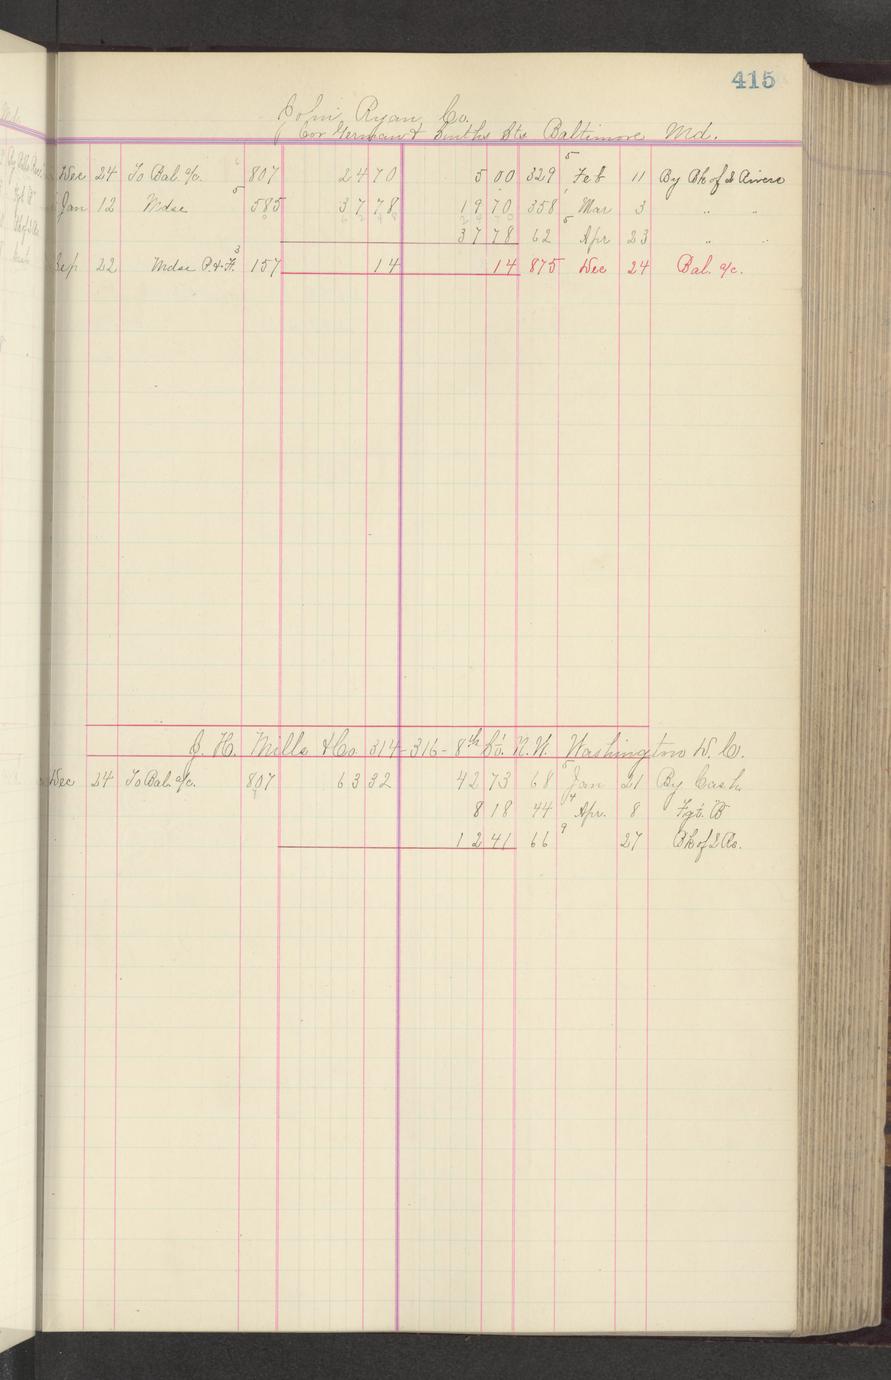 415
John Ryan Co.
Cor German & Souths Sts Baltimore Md.
Dec 24 To Bal. a/c. 807 24 70 5 00 329 5 Feb 11 By Bk of 2 Rivers
Jan 12 Mdse 5 585 37 78 19 70 358 1 Mar 3 " "
37 78 62 5 Apr 23 " "
Sep 22 Mdse P.&F. 3 157 14 14 875 Dec 24 Bal. a/c.
J. H. Mills & Co. 314-316-8th St. N.W. Washington D.C.
Dec 24 To Bal. a/c. 807 63 32 42 73 68 5 Jan 21 By Cash
8 18 44 4 Apr. 8 Fgt. B
12 41 66 9 27 Bk of 2 Rs.